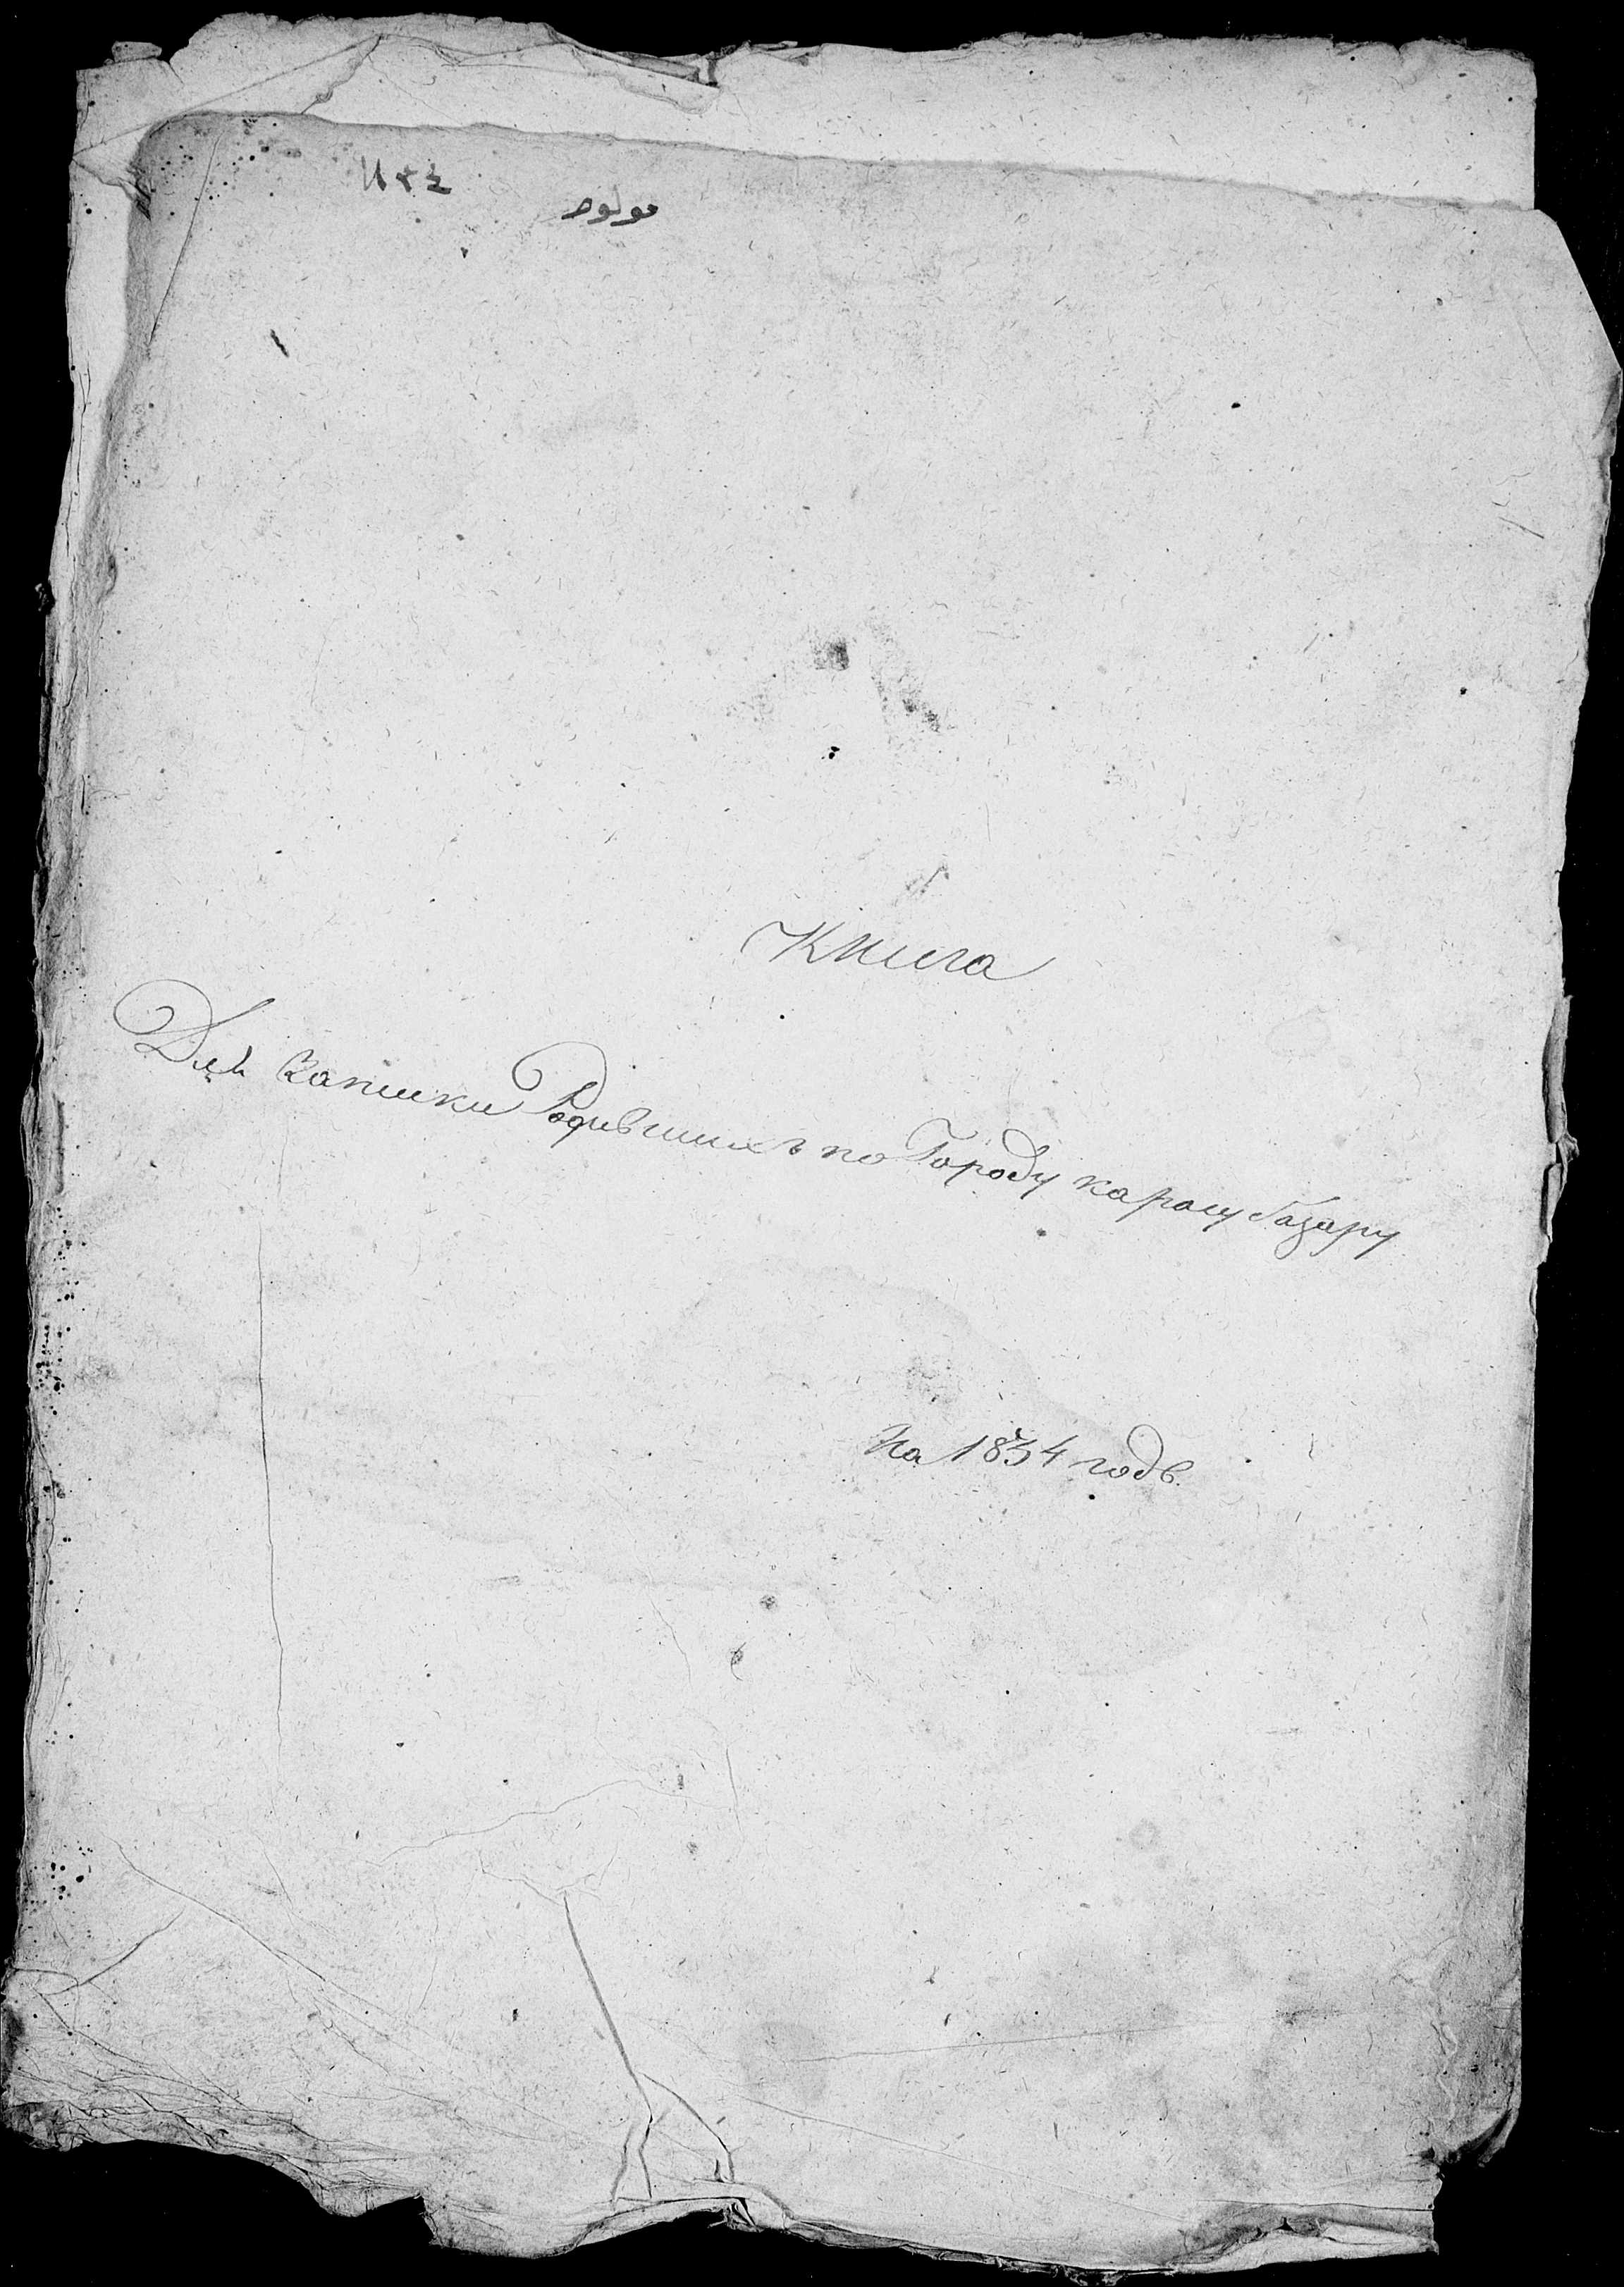 ١٨٣٤
مولود
Книга
Для Записки Родившихъ по Городу карасу базару
На 1834 годъ.